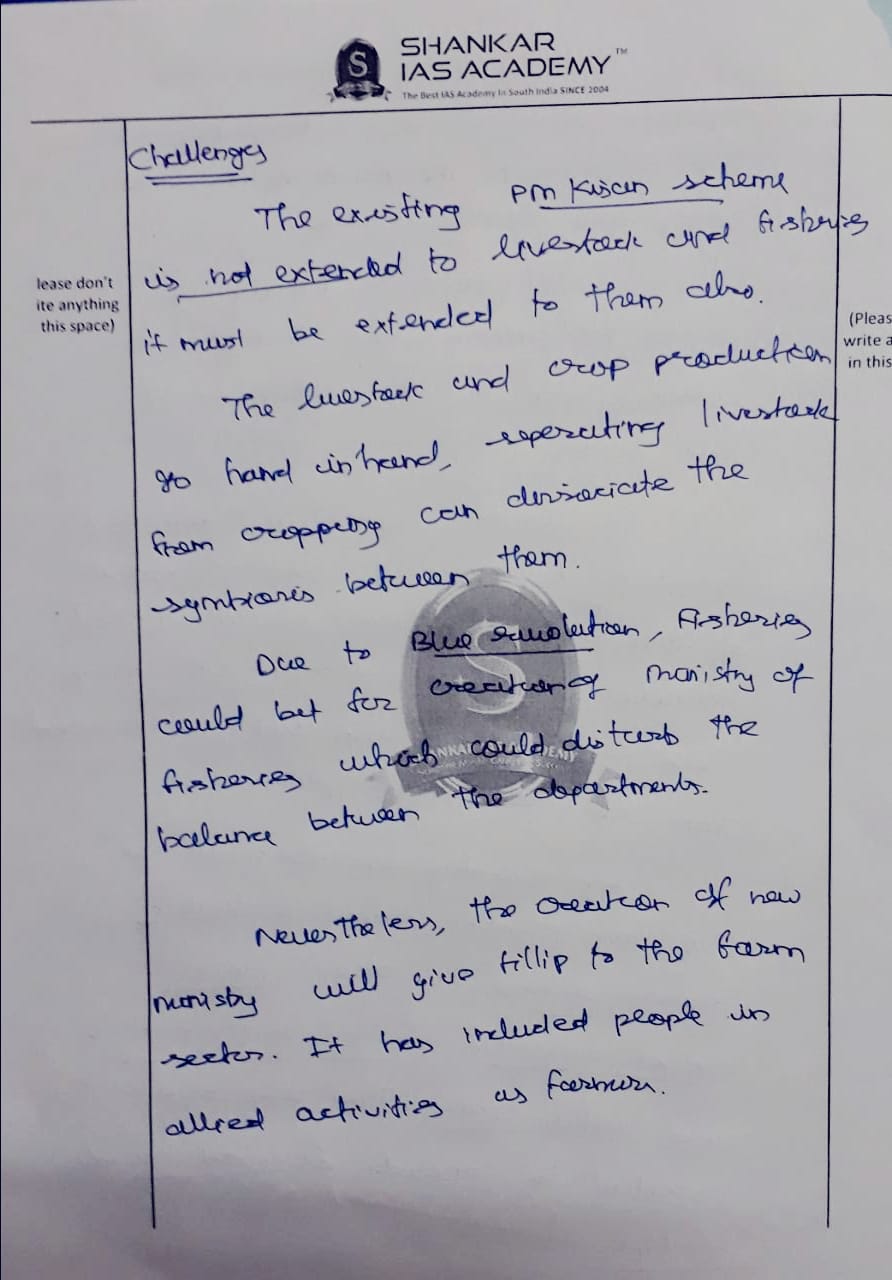 SHANKAR
IAS ACADEMY™
The Best IAS Academy In South India SINCE 2004
Challenges
The existing PM Kisan scheme
is not extended to livestock and fisheries
it must be extended to them also.
The livestock and crop production
go hand in hand, seperating livestock
from cropping can dissociate the
symbiosis between them.
Due to Blue revolution, Fisheries
could bet for creation of Ministry of
fisheries which could disturb the
balance between the departments.
Nevertheless, the creation of new
ministry will give fillip to the farm
sector. It has included people in
allied activities as farmer.
lease don't
ite anything
this space)
(Pleas
write a
in this